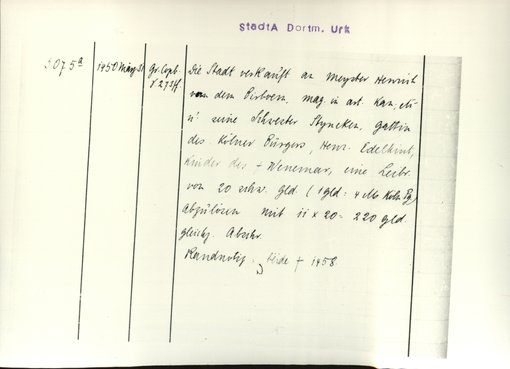 StadtA Dortm. Urk
3075a 1450 März 31 Gr. Copb. I 273ff.
Die Stadt verkauft an Meyster Henrich
van dem Persoen, mag. in art. Kan.,
u. seine Schwester Styneken, Gattin
des Kölner Bürgers, Henr. Edelkint,
Kinder des + Wenemar, eine Leibr.
von 20 schw. gld. (1 gld = 4 Mk Köln. Pg.)
Abzulösen mit 11 x 20 = 220 gld
gleichz. Abschr.
Randnotiz. Beide + 1458.